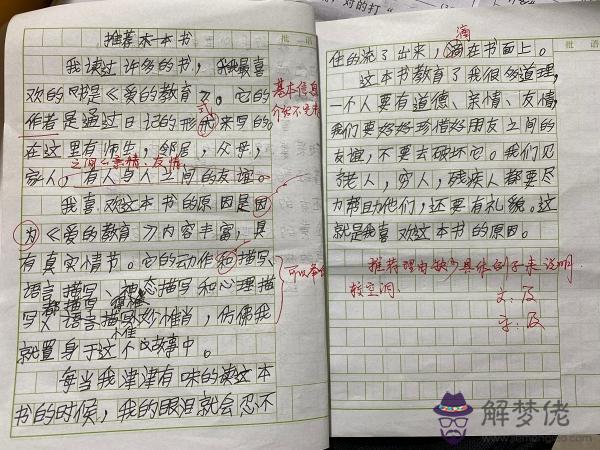 推荐一本书
我读过许多的书，我最喜
欢的书是《爱的教育》。它的
作者是通过日记的形式来写的。
在这里有师生，邻居，父母，
之间的亲情、友情，
家人，有人与人之间的友谊。
我喜欢这本书的原因是因
为《爱的教育》内容丰富，具
有真实情节。它的动作和描写、
语言描写、神态描写和心理描
写，语言描写妙惟肖，仿佛我
就置身于这个故事中。
每当我津津有味的读这本
书的时候，我的眼泪就会忍不
批语
基本信息
介绍不完整
可以举例
住的流了出来，滴在书面上。
这本书教育了我很多道理，
一个人要有道德、亲情、友情，
我们要好好珍惜好朋友之间的
友谊，不要去破坏它。我们见
老人，穷人，残疾人都要尽
力帮助他们，还要有礼貌。这
就是我喜欢这本书的原因。
推荐理由缺少具体例子来说明，
较空洞。
文：及
字：及
批语
解梦佬
www.jiemenglao.com